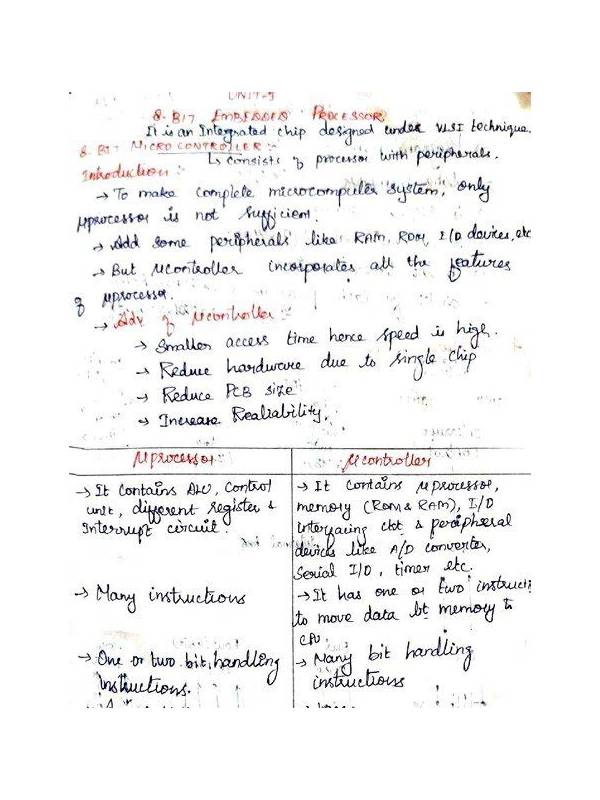 UNIT-I
8-BIT EMBEDDED PROCESSOR
It is an Intergrated chip designed under VLSI technique.
8-BIT MICROCONTROLLER:-
↳ consists of processor with peripherals.
Introduction:-
→ To make complete microcomputer system, only
μprocessor is not sufficient.
→ Add some peripherals like RAM, ROM, I/O devices, etc
→ But μcontroller incorporates all the features
of μprocessor.
→ Adv of μcontroller:-
→ Smaller access time hence speed is high.
→ Reduce hardware due to single chip
→ Reduce PCB size
→ Increase Realiability.
μprocessor:
→ It contains ALU, Control
unit, different register &
Interrupt circuit.
→ Many instructions
→ One or two bit handling
instructions.
μcontroller
→ It contains μprocessor,
memory (ROM & RAM), I/O
interfacing ckt & peripheral
devices like A/D converter,
Serial I/O, timer etc.
→ It has one or two instructi
to move data bt memory to
CPU.
→ Many bit handling
instructions